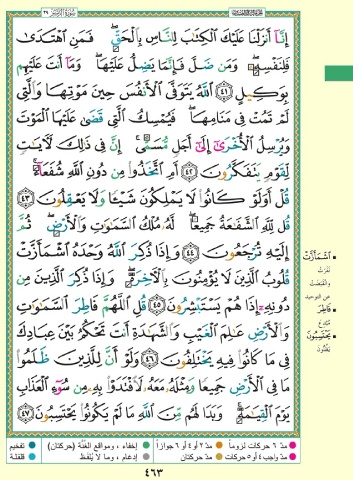 سُورَةُ الزُّمَرِ ٣٩
إِنَّآ أَنزَلْنَا عَلَيْكَ ٱلْكِتَٰبَ لِلنَّاسِ بِٱلْحَقِّ ۖ فَمَنِ ٱهْتَدَىٰ
فَلِنَفْسِهِۦ ۖ وَمَن ضَلَّ فَإِنَّمَا يَضِلُّ عَلَيْهَا ۖ وَمَآ أَنتَ عَلَيْهِم
بِوَكِيلٍ ٤١ ٱللَّهُ يَتَوَفَّى ٱلْأَنفُسَ حِينَ مَوْتِهَا وَٱلَّتِى
لَمْ تَمُتْ فِى مَنَامِهَا ۖ فَيُمْسِكُ ٱلَّتِى قَضَىٰ عَلَيْهَا ٱلْمَوْتَ
وَيُرْسِلُ ٱلْأُخْرَىٰٓ إِلَىٰٓ أَجَلٍ مُّسَمًّى ۚ إِنَّ فِى ذَٰلِكَ لَءَايَٰتٍ
لِّقَوْمٍ يَتَفَكَّرُونَ ٤٢ أَمِ ٱتَّخَذُوا۟ مِن دُونِ ٱللَّهِ شُفَعَآءَ ۚ
قُلْ أَوَلَوْ كَانُوا۟ لَا يَمْلِكُونَ شَيْـًٔا وَلَا يَعْقِلُونَ ٤٣
قُل لِّلَّهِ ٱلشَّفَٰعَةُ جَمِيعًا ۖ لَّهُۥ مُلْكُ ٱلسَّمَٰوَٰتِ وَٱلْأَرْضِ ۖ ثُمَّ
إِلَيْهِ تُرْجَعُونَ ٤٤ وَإِذَا ذُكِرَ ٱللَّهُ وَحْدَهُ ٱشْمَأَزَّتْ
قُلُوبُ ٱلَّذِينَ لَا يُؤْمِنُونَ بِٱلْءَاخِرَةِ ۖ وَإِذَا ذُكِرَ ٱلَّذِينَ مِن
دُونِهِۦٓ إِذَا هُمْ يَسْتَبْشِرُونَ ٤٥ قُلِ ٱللَّهُمَّ فَاطِرَ ٱلسَّمَٰوَٰتِ
وَٱلْأَرْضِ عَٰلِمَ ٱلْغَيْبِ وَٱلشَّهَٰدَةِ أَنتَ تَحْكُمُ بَيْنَ عِبَادِكَ
فِى مَا كَانُوا۟ فِيهِ يَخْتَلِفُونَ ٤٦ وَلَوْ أَنَّ لِلَّذِينَ ظَلَمُوا۟
مَا فِى ٱلْأَرْضِ جَمِيعًا وَمِثْلَهُۥ مَعَهُۥ لَٱفْتَدَوْا۟ بِهِۦ مِن سُوٓءِ ٱلْعَذَابِ
يَوْمَ ٱلْقِيَٰمَةِ ۚ وَبَدَا لَهُم مِّنَ ٱللَّهِ مَا لَمْ يَكُونُوا۟ يَحْتَسِبُونَ ٤٧
ٱشْمَأَزَّتْ
نَفَرَتْ
وانْقَبَضَتْ
عن التوحيد
فَاطِرَ
مُبْدِعَ
يَحْتَسِبُونَ
يَظُنُّونَ
مدّ ٦ حركات لزوماً مدّ ٢ أو ٤ أو ٦ جوازاً إخفاء، ومواقع الغُنَّة (حركتان) تفخيم
مدّ واجب ٤ أو ٥ حركات مدّ حركتان إدغام، وما لا يُلفَظ قلقلة
٤٦٣